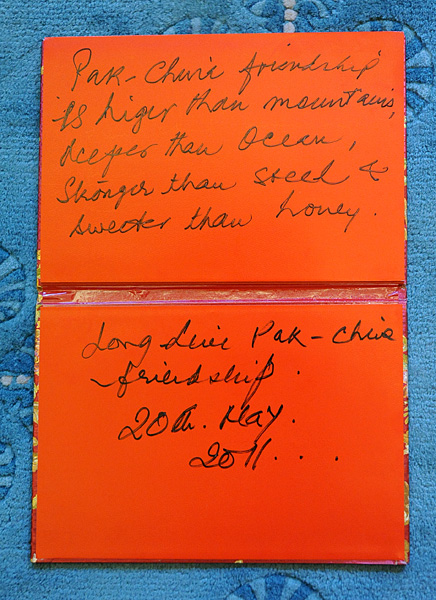 Pak-China friendship
is higer than mountains,
deeper than Ocean,
Stronger than steel &
sweeter than honey.
Long Live Pak-China
friendship.
20th. May.
2011...